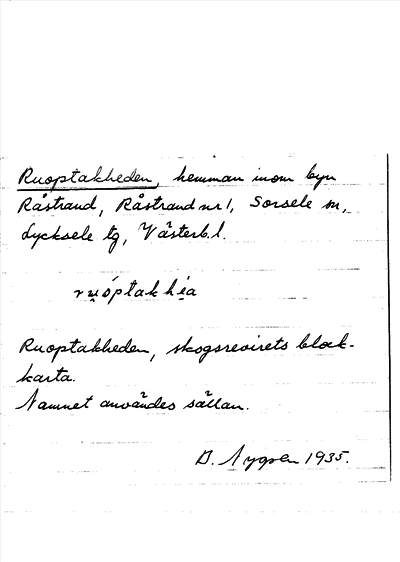 Ruoptakheden, hemman inom byn
Råstrand, Råstrand nr 1, Sorsele sn,
Lycksele tg, Västerb. l.
ru̯óptak hi̯a
Ruoptakheden, skogsrevirets block-
karta.
Namnet användes sällan.
D. Nygren 1935.